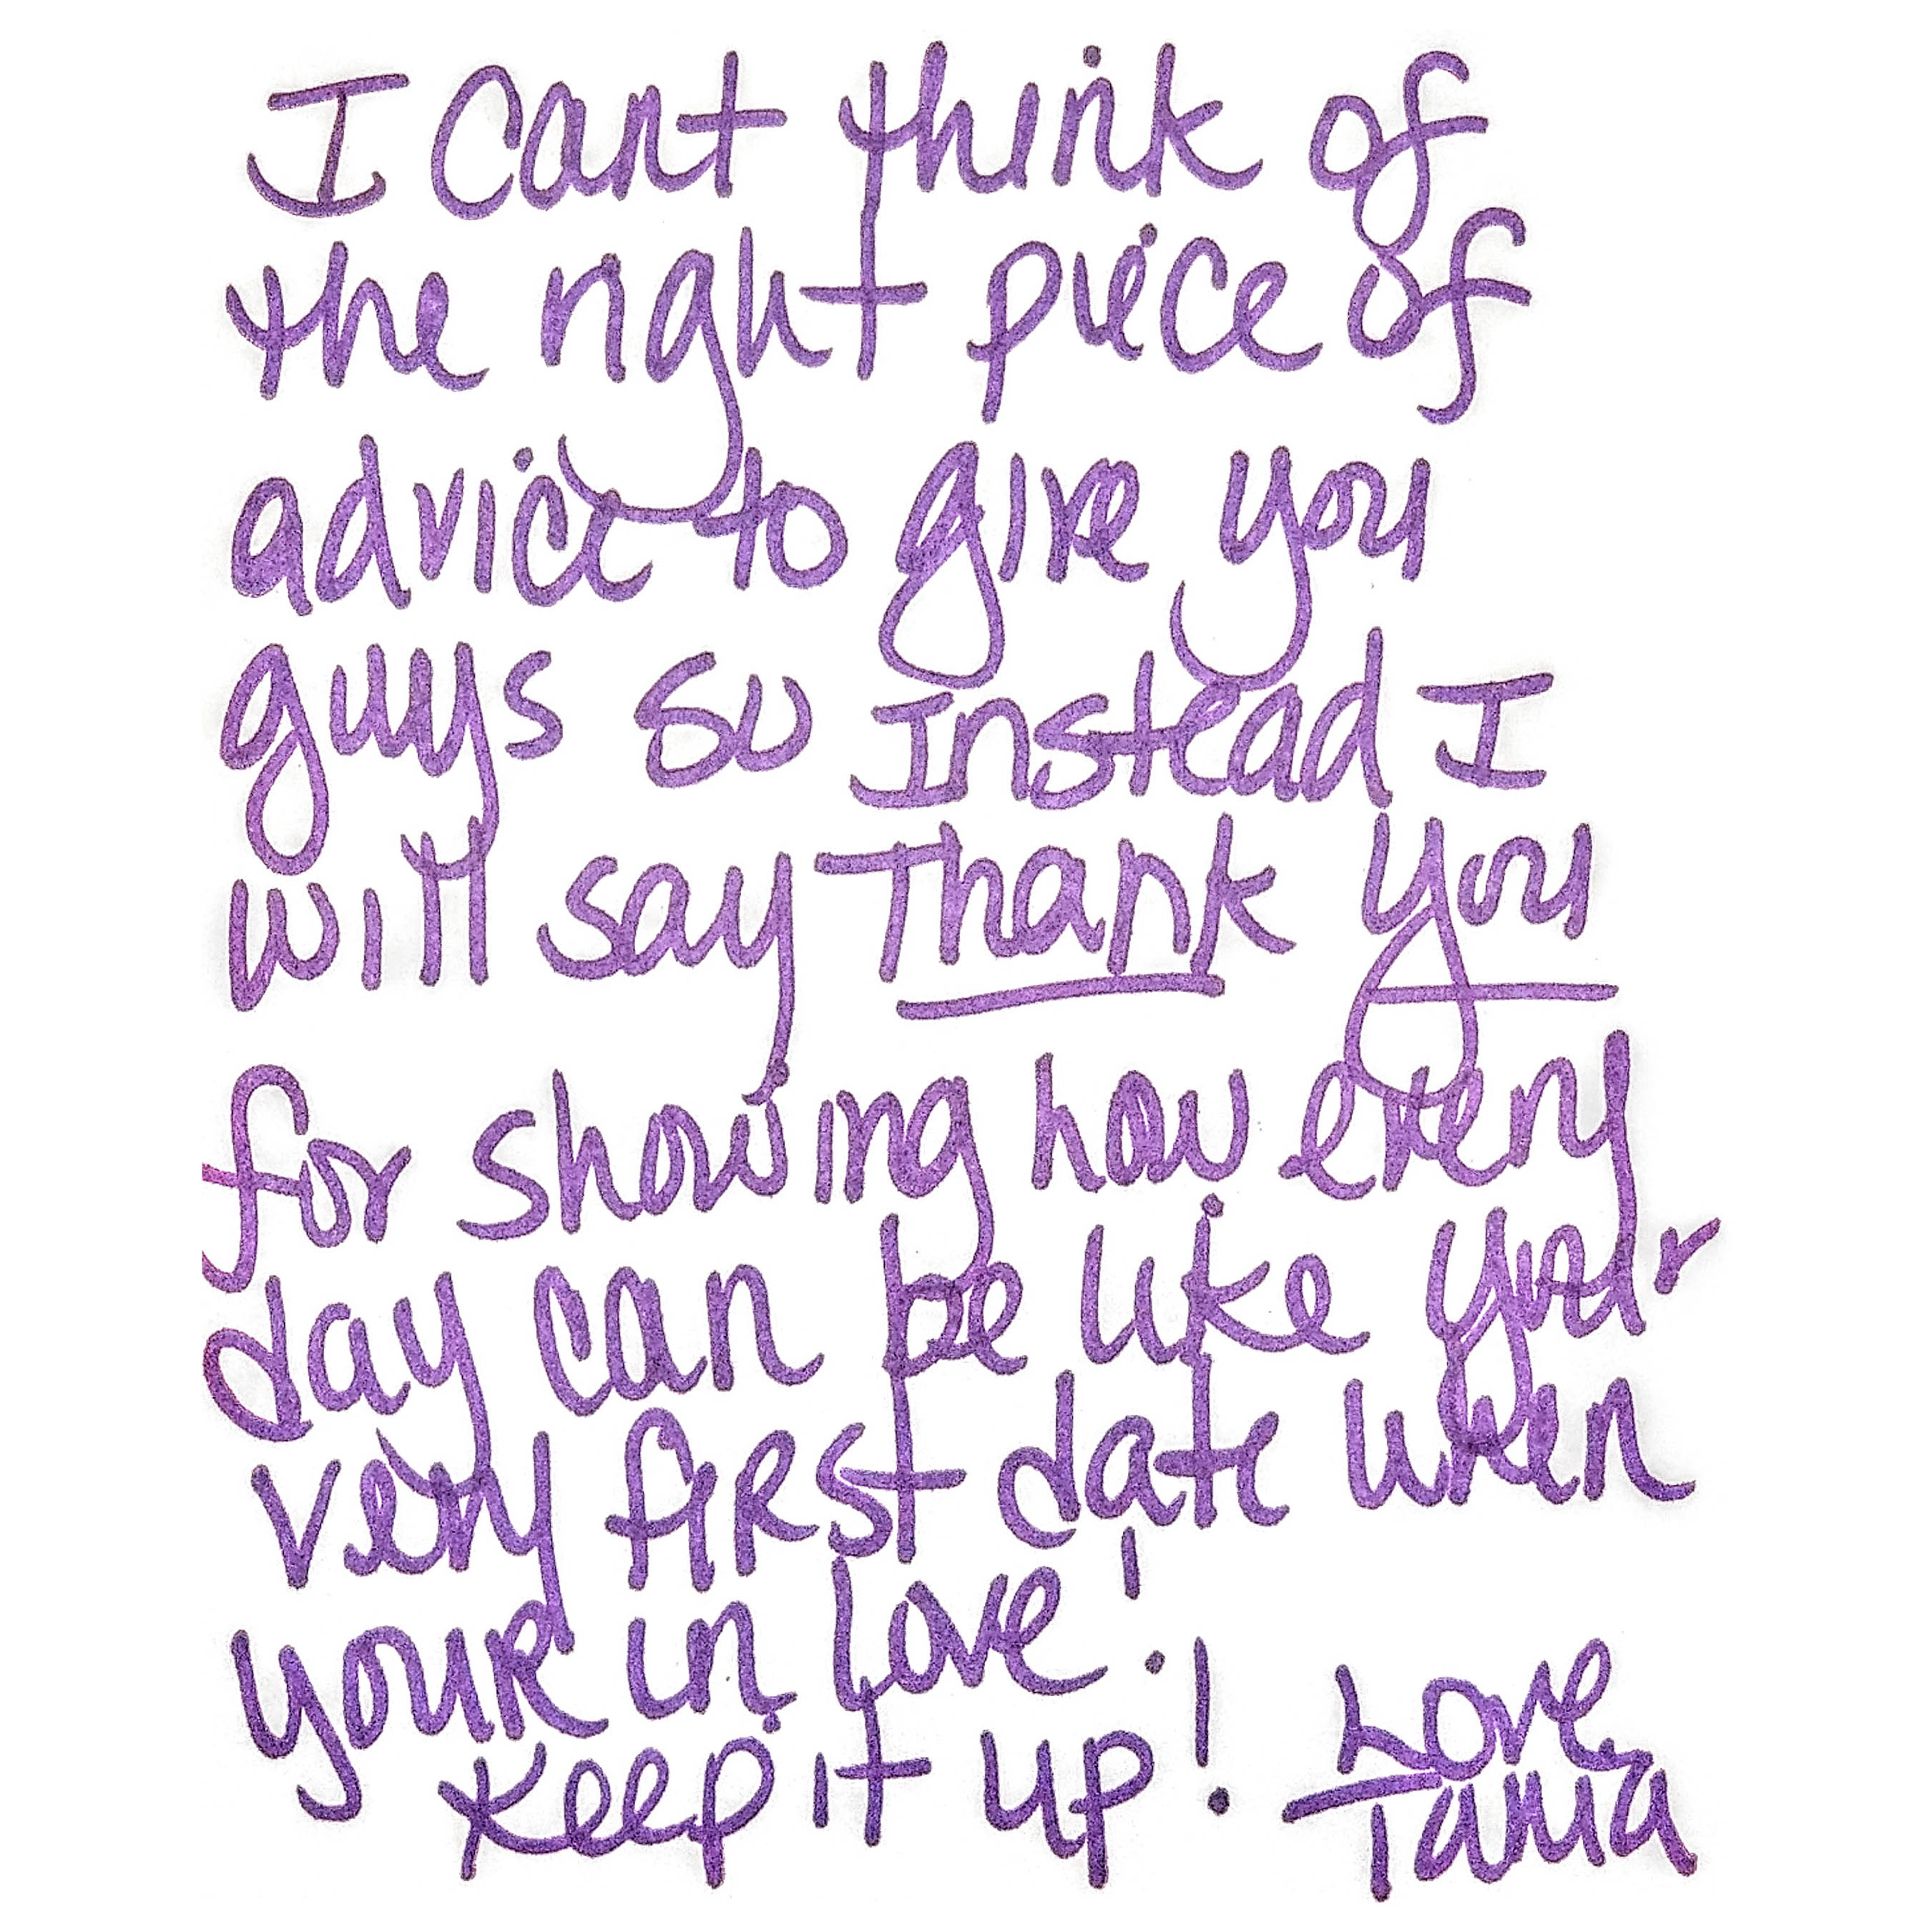 I Cant think of
the right piece of
advice to give you
guys so Instead I
will say Thank you
for showing how every
day can be like your
very first date when
your in Love!
Keep it up! Love,
Tania